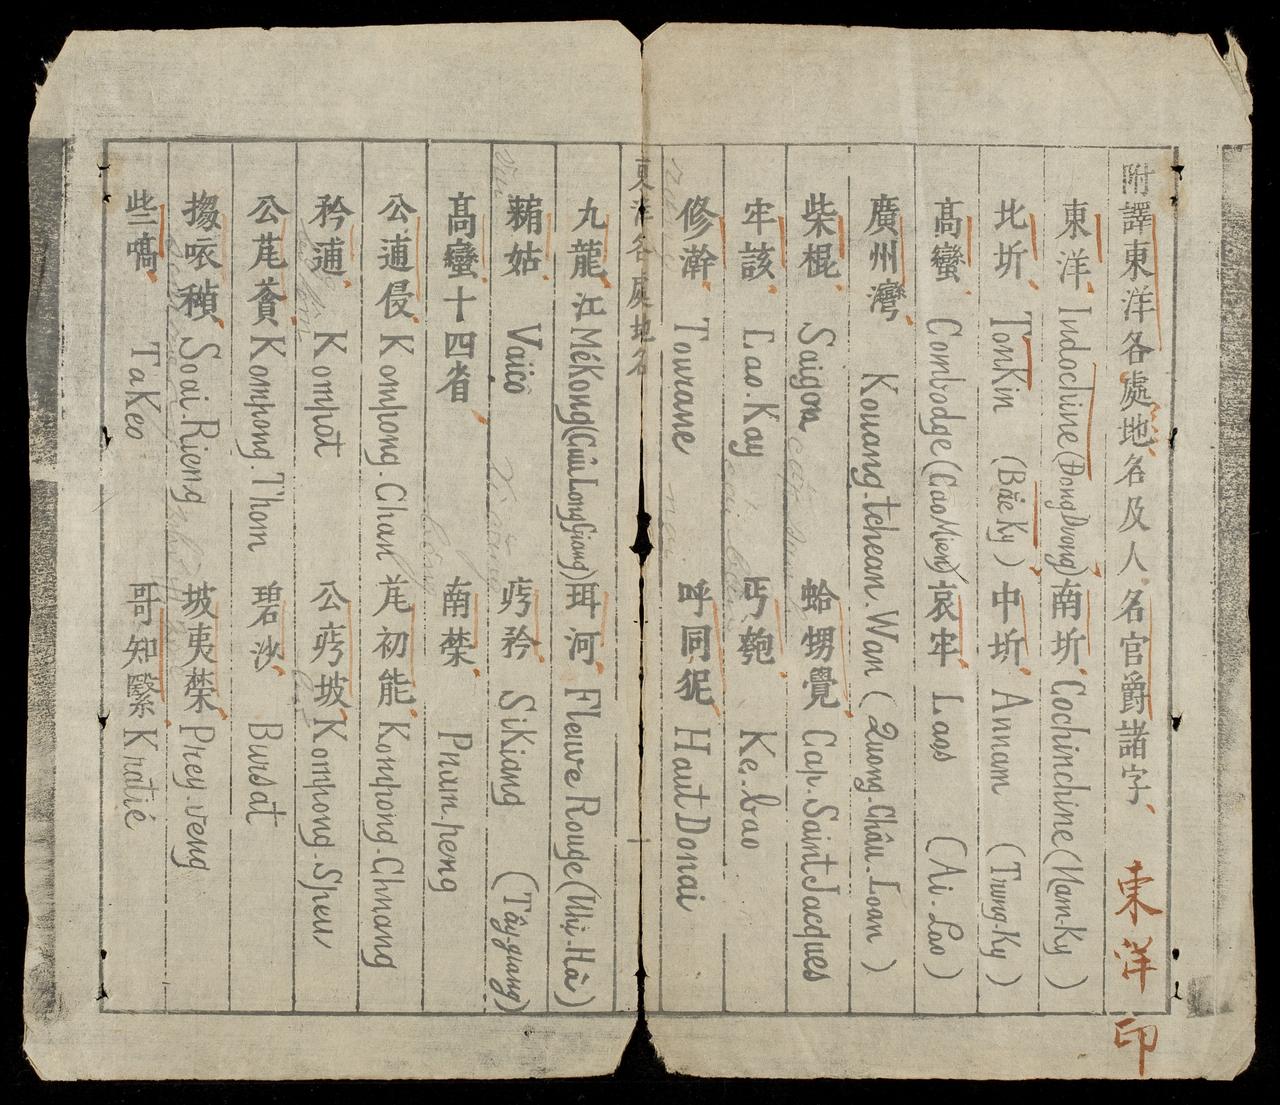 附譯東洋各處地名及人名官爵諸字 東洋印
東洋 Indochine (Đong Dvong) 南圻 Cochinchine (Nam-Ky)
北圻 TonKin (Bắc Ky) 中圻 Annam (Trung-Ky)
高蠻 Combodge (Cao Mien) 哀牢 Laos (Ai-Lao)
廣州灣 Kouang.tchean.Wan (Quong-Châu-Loan)
柴棍 Saigon 蛤甥覺 Cap.Saint Jacques
牢該 Lao.Kay 丐匏 Ke-bao
修瀚 Tourane 呼同狔 Haut Donai
東洋各處地名
九龍江 MéKong (Cuủ Long Giang) 珥河 Fleuve Rouge (Nhị-Hà)
姑 Vaïco 矜 SiKiang (Tây-giang)
高蠻十四省 南榮 Pnum-peng
公逋侵 Kompong.Chan 芃初能 Kompong.Chnang
矜逋 Kompot 公坡 Kompong.Speu
公芃貪 Kompong.Thom 碧沙 Bursat
Soai.Rieng 坡夷榮 Prey-veng
些嗃 TaKeo 哥知緊 Kratié